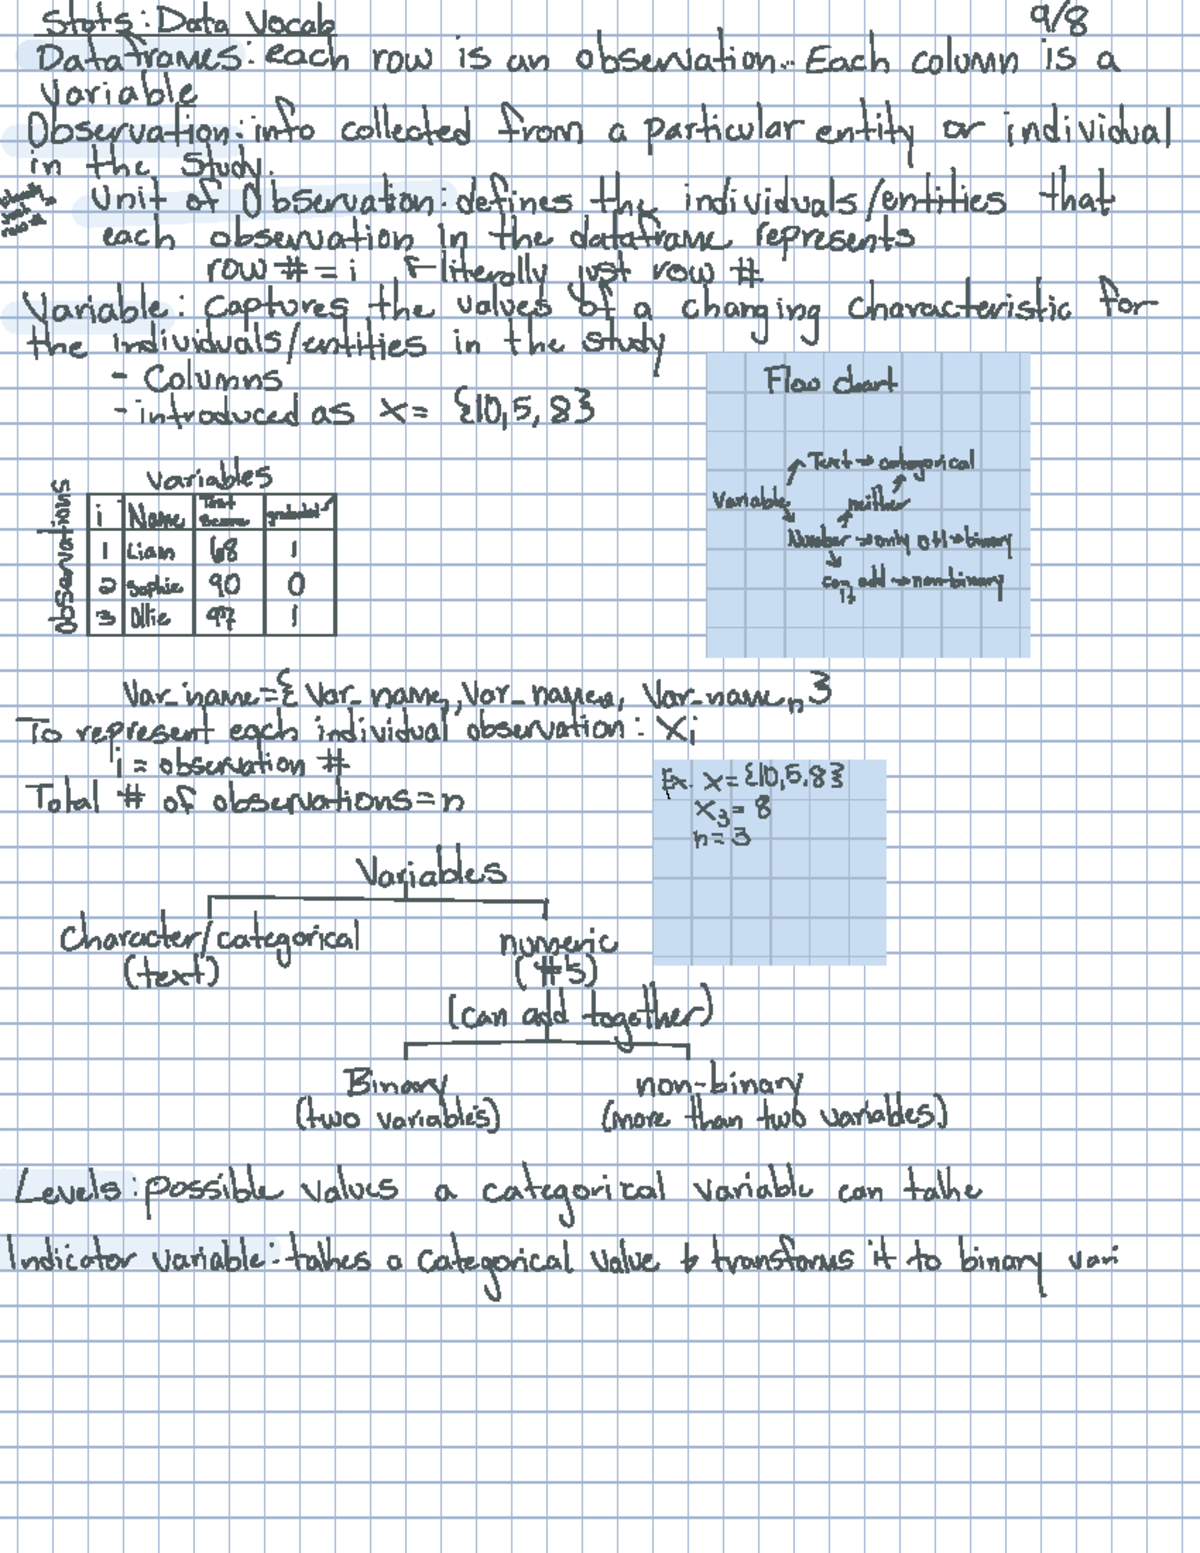 Stats: Data Vocab 9/8
Dataframes: each row is an observation. Each column is a
variable
Observation: info collected from a particular entity or individual
in the study.
Unit of Observation: defines the individuals/entities that
each observation in the dataframe represents
row # = i ← literally just row #
Variable: Captures the values of a changing characteristic for
the individuals/entities in the study
- Columns
- introduced as X = {10, 5, 8}
Flow chart
Text → categorical
Variable neither
Number → only 0 + 1 → binary
can add → non-binary
it
Variables
Observations
i Name Test Score graduated
1 Liam 68 1
2 Sophie 90 0
3 Ollie 97 1
Var_name = { Var_name, Var_name₂, Var_nameₙ }
To represent each individual observation: Xᵢ
i = observation #
Total # of observations = n
Ex. X = {10, 5, 8}
X₃ = 8
n = 3
Variables
Character/categorical numeric
(text) (#s)
(can add together)
Binary non-binary
(two variables) (more than two variables)
Levels: possible values a categorical variable can take
Indicator variable: takes a categorical value & transforms it to binary vari